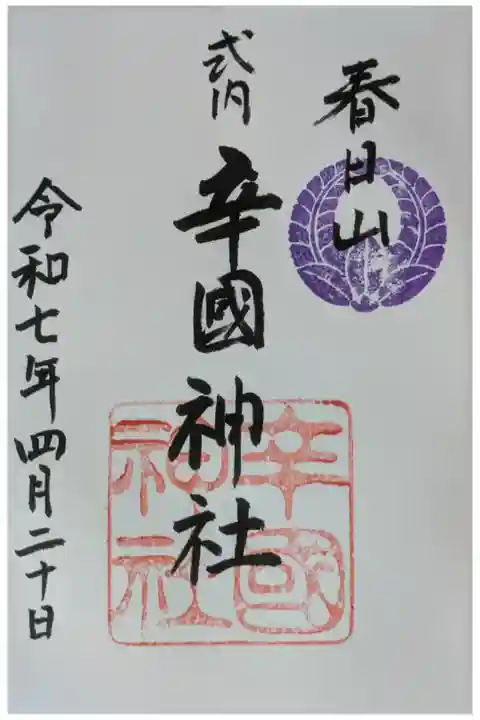 春日山
式内
辛國神社
辛國
神社
令和七年四月二十日